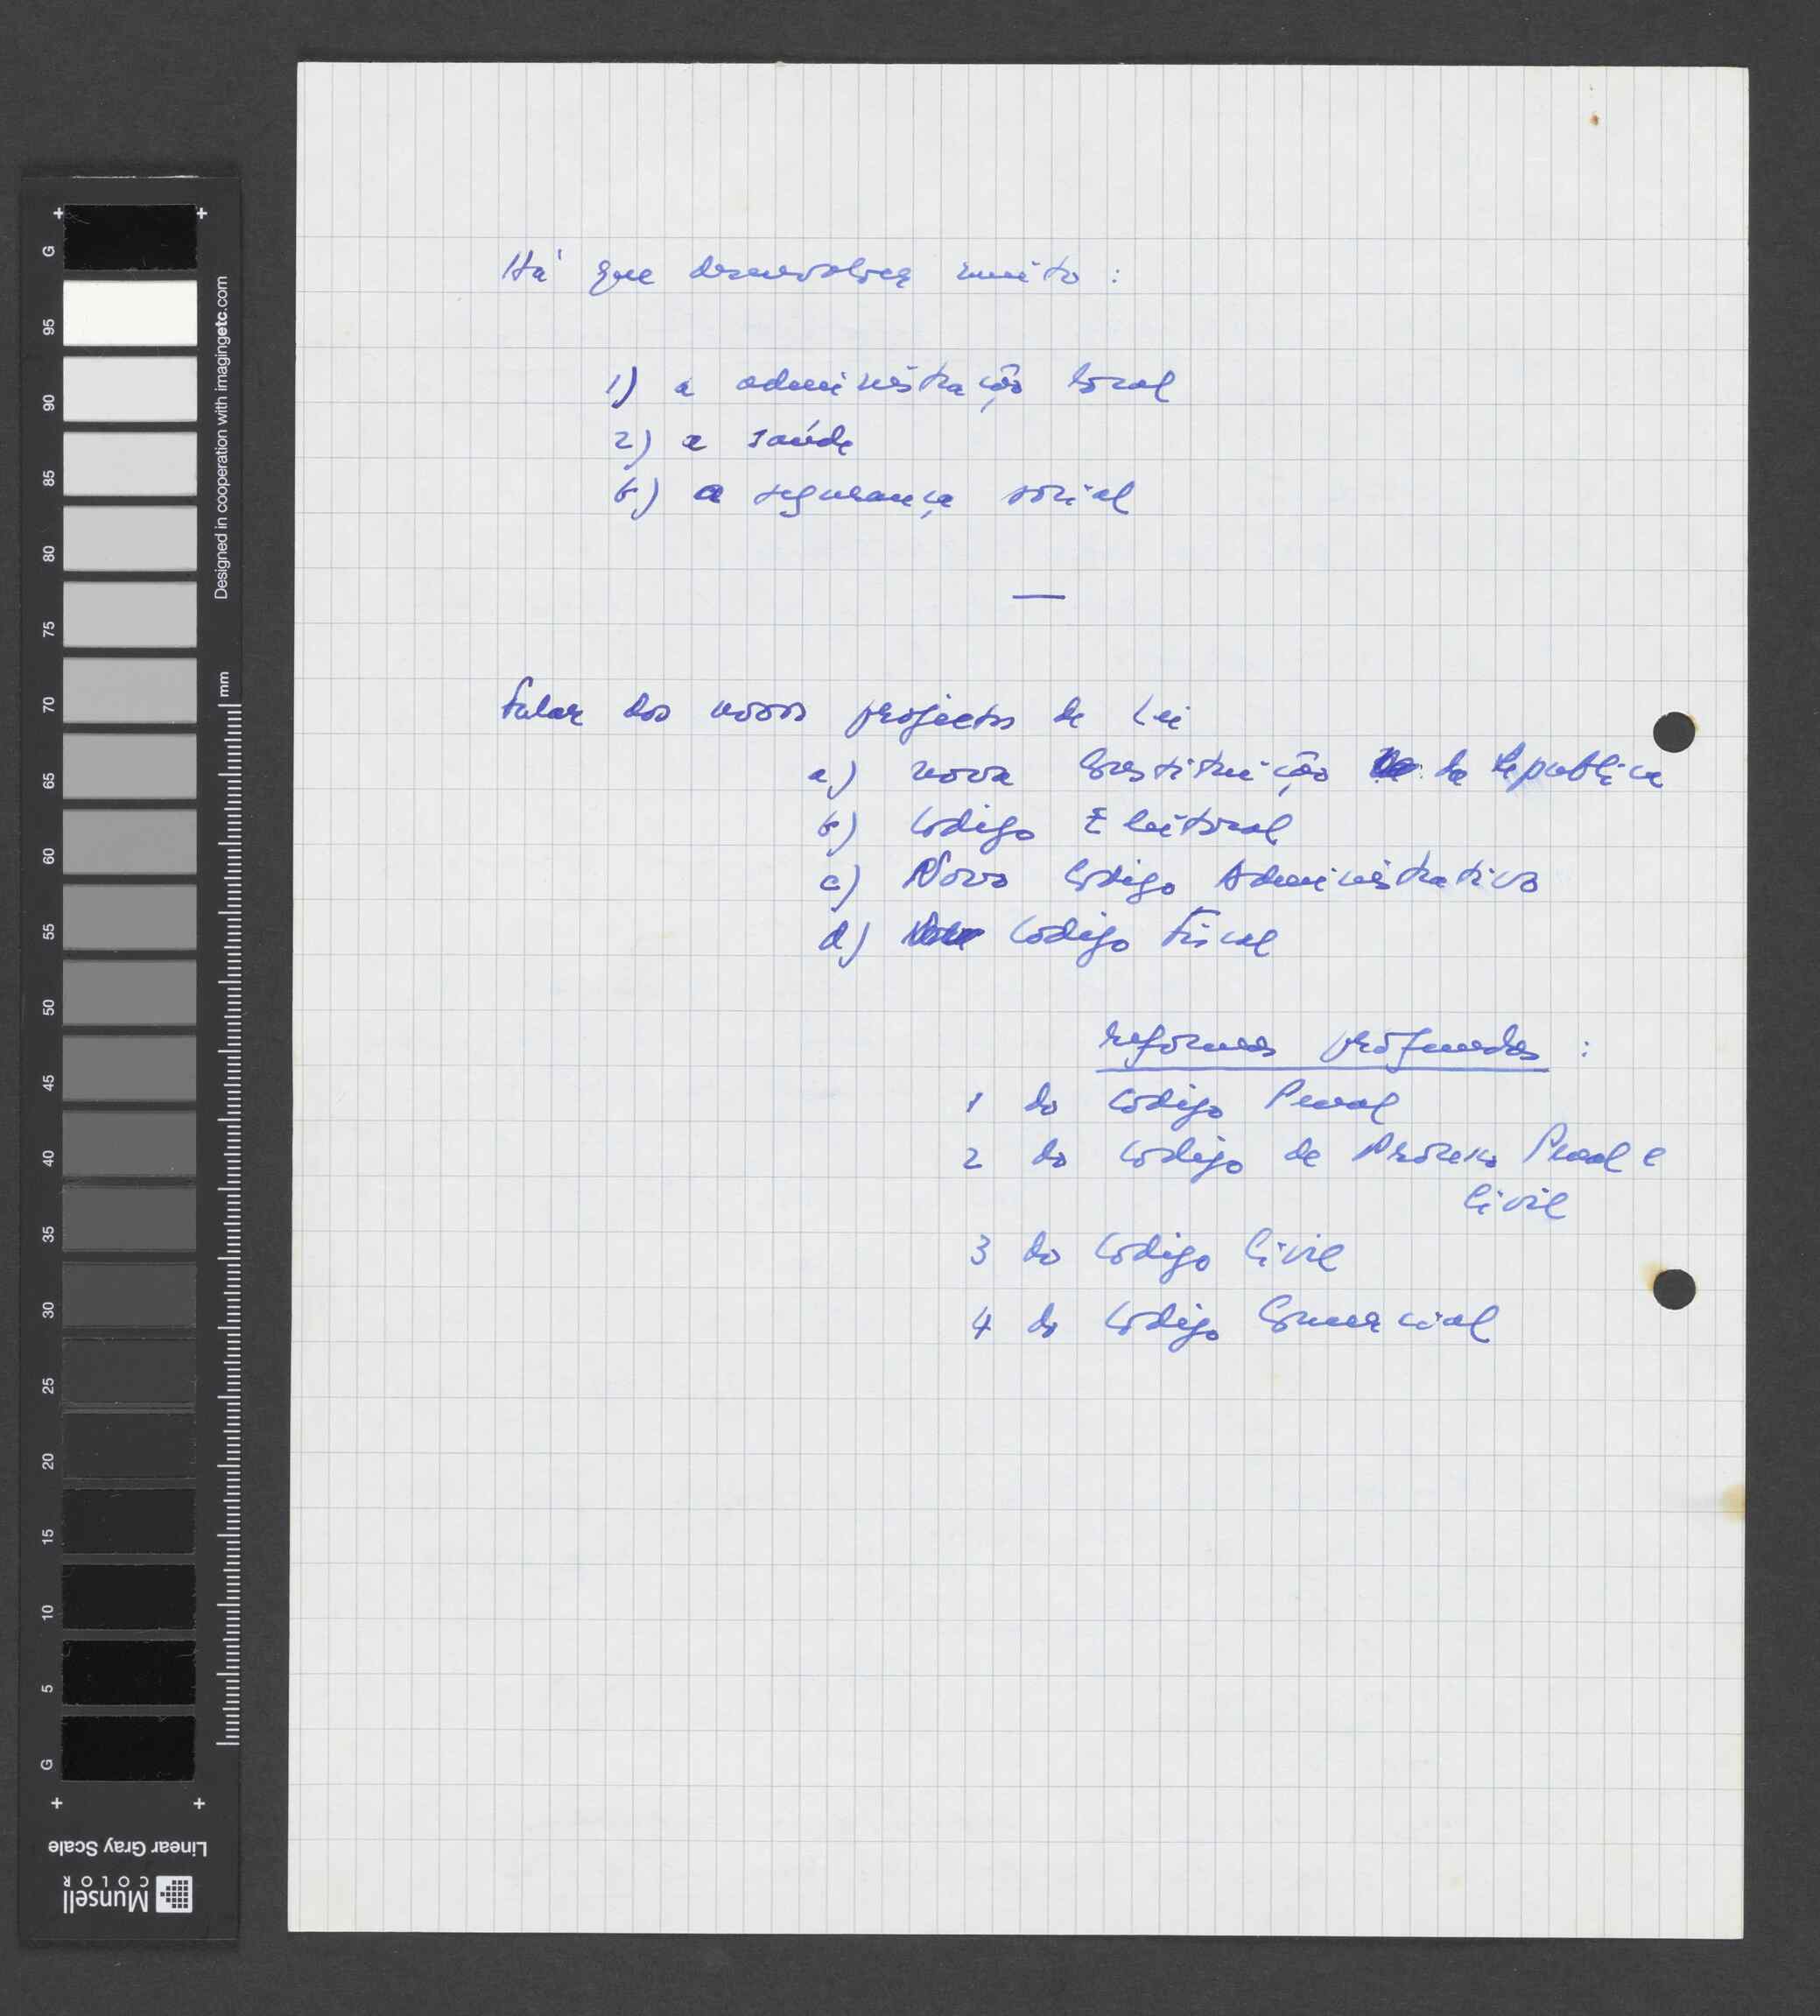 Há que desenvolver muito :
1) a administração local
2) a saúde
6) a segurança social
Falar dos novos projectos de Lei
a) nova Constituição da Republica
b) Codigo Eleitoral
c) Novo Codigo Administrativo
d) Codigo Fiscal
reformas profundas :
1 do Codigo Penal
2 do Codigo de Processo Penal e
Civil
3 do Codigo Civil
4 do Codigo Comercial
G
95
90
85
80
75
70
65
60
55
50
45
40
35
30
25
20
15
10
5
G
Designed in cooperation with imagingetc.com
mm
Linear Gray Scale
Munsell
COLOR